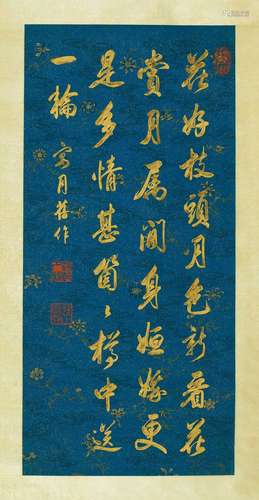 花好枝頭月色新看花
賞月属閒身姮娥更
是多情甚箇〻樽中送
一輪 寫月舊作